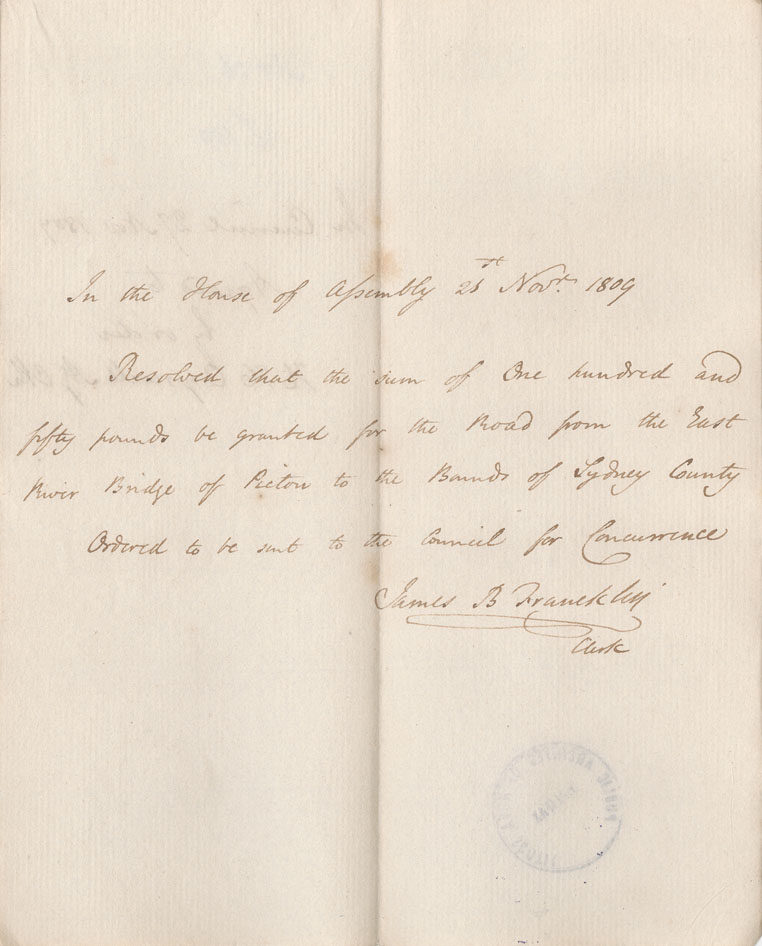 In the House of Assembly 21st Novr. 1809
Resolved that the sum of One hundred and
fifty pounds be granted for the Road from the East
River Bridge of Picton to the Bounds of Sydney County
Ordered to be sent to the Council for Concurrence
James B Francklin
Clerk